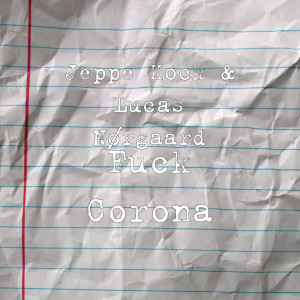 Jeppe Kock &
Lucas
Nørgaard
Fuck
Corona